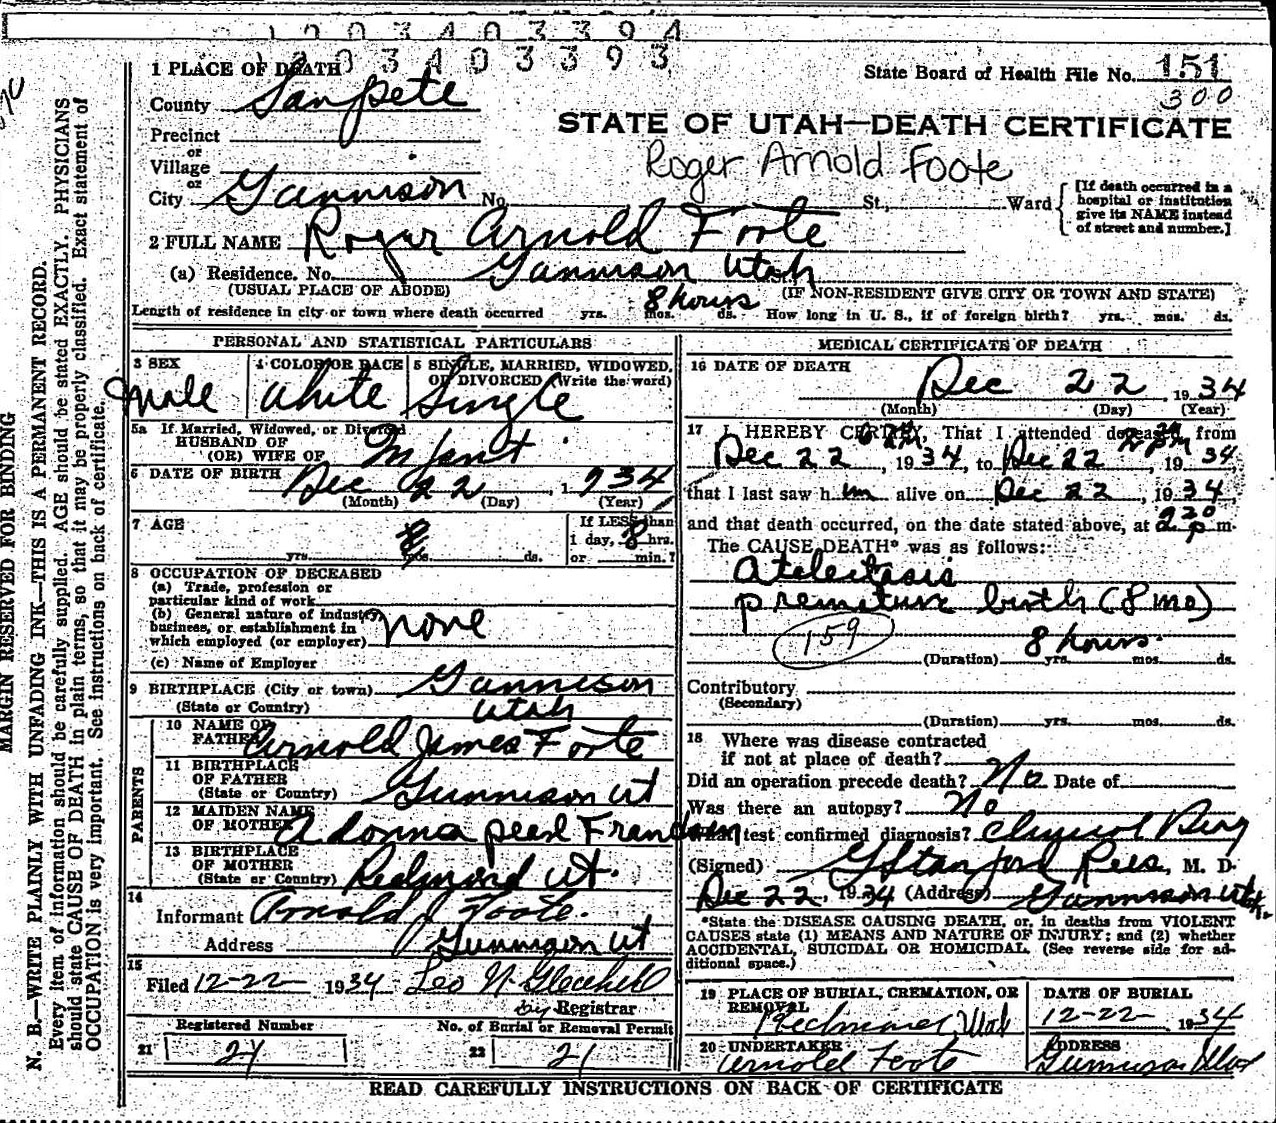 1 2 0 3 4 0 3 3 9 4
0 3 4 0 3 3 9 3
State Board of Health File No. 151
300
STATE OF UTAH—DEATH CERTIFICATE
Roger Arnold Foote
1 PLACE OF DEATH
County Sanpete
Precinct
or
Village
or
City Gunnison No. St., Ward
[If death occurred in a
hospital or institution
give its NAME instead
of street and number.]
2 FULL NAME Roger Arnold Foote
(a) Residence. No. Gunnison Utah
(USUAL PLACE OF ABODE) (IF NON-RESIDENT GIVE CITY OR TOWN AND STATE)
8 hours
Length of residence in city or town where death occurred yrs. mos. ds. How long in U. S., if of foreign birth? yrs. mos. ds.
PERSONAL AND STATISTICAL PARTICULARS
3 SEX
male
4 COLOR OR RACE
white
5 SINGLE, MARRIED, WIDOWED,
OR DIVORCED (Write the word)
Single
5a If Married, Widowed, or Divorced
HUSBAND OF
(OR) WIFE OF Infant
6 DATE OF BIRTH Dec 22, 1934
(Month) (Day) (Year)
7 AGE
yrs. 8 mos. ds.
If LESS than
1 day, 8 hrs.
or min.?
8 OCCUPATION OF DECEASED
(a) Trade, profession or
particular kind of work
(b) General nature of industry,
business, or establishment in
which employed (or employer) none
(c) Name of Employer
9 BIRTHPLACE (City or town) Gunnison
(State or Country) Utah
PARENTS
10 NAME OF
FATHER Arnold James Foote
11 BIRTHPLACE
OF FATHER
(State or Country) Gunnison Ut
12 MAIDEN NAME
OF MOTHER Adonna pearl Frandsen
13 BIRTHPLACE
OF MOTHER
(State or Country) Redmond Ut.
14
Informant Arnold J Foote.
Address Gunnison Ut
15
Filed 12-22 1934 Leo N Gledhill
by Registrar
Registered Number
21 21
No. of Burial or Removal Permit
22 21
MEDICAL CERTIFICATE OF DEATH
16 DATE OF DEATH
Dec 22, 1934
(Month) (Day) (Year)
17 I HEREBY CERTIFY, That I attended deceased from
Dec 22, 1934, to Dec 22, 1934,
that I last saw him alive on Dec 22, 1934,
and that death occurred, on the date stated above, at 230 p m.
The CAUSE DEATH* was as follows:
Atelectasis
premature birth (8 mo)
159
8 hours.
(Duration) yrs. mos. ds.
Contributory
(Secondary)
(Duration) yrs. mos. ds.
18 Where was disease contracted
if not at place of death?
Did an operation precede death? No Date of
Was there an autopsy? No
What test confirmed diagnosis?
(Signed) G Stanford Rees, M. D.
Dec 22, 1934 (Address) Gunnison Utah.
*State the DISEASE CAUSING DEATH, or, in deaths from VIOLENT
CAUSES state (1) MEANS AND NATURE OF INJURY; and (2) whether
ACCIDENTAL, SUICIDAL OR HOMICIDAL. (See reverse side for ad-
ditional space.)
19 PLACE OF BURIAL, CREMATION, OR
REMOVAL
Redmond, Utah
DATE OF BURIAL
12-22, 1934
20 UNDERTAKER
Arnold Foote
ADDRESS
Gunnison Utah
READ CAREFULLY INSTRUCTIONS ON BACK OF CERTIFICATE
MARGIN RESERVED FOR BINDING
N. B.—WRITE PLAINLY WITH UNFADING INK—THIS IS A PERMANENT RECORD.
Every item of information should be carefully supplied. AGE should be stated EXACTLY. PHYSICIANS
should state CAUSE OF DEATH in plain terms, so that it may be properly classified. Exact statement of
OCCUPATION is very important. See instructions on back of certificate.